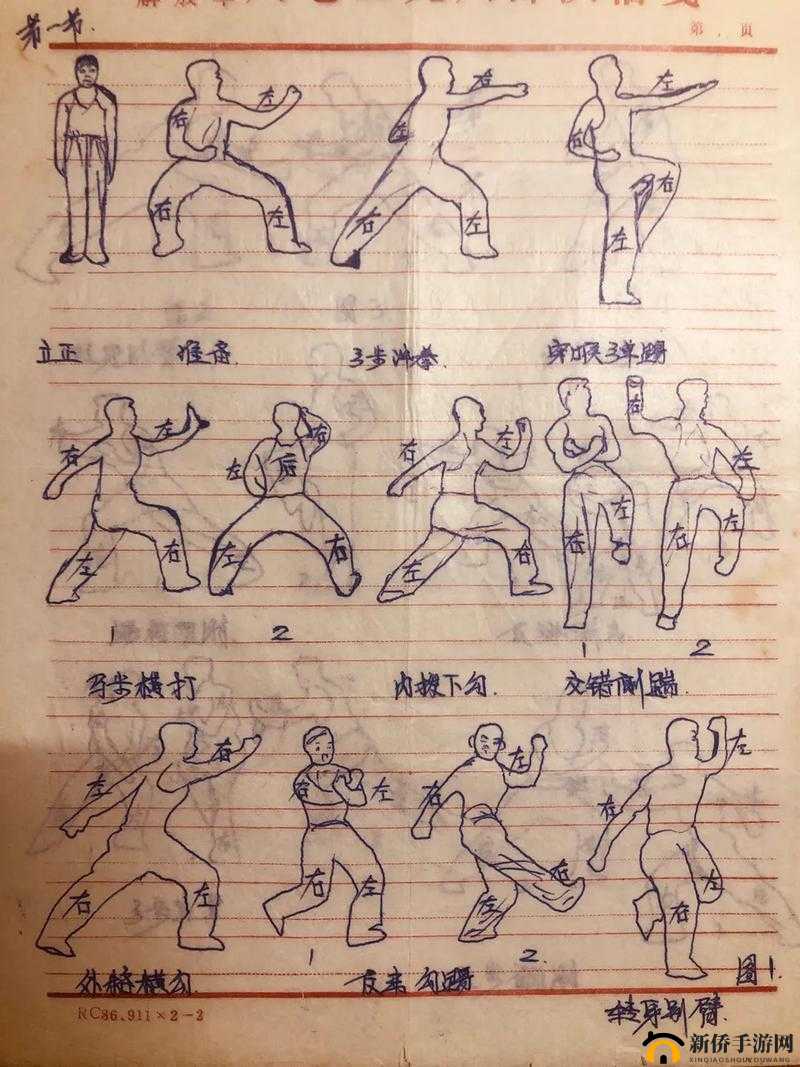 第一节.
第 页
左 右 左
右 左 右
右 左 右 左 左 右
立正 准备. 弓步冲拳. 穿喉弹踢
左 右 左 右
右 左 后 右 左 左
左 右 左 右 左 右 右 左 右 左
1 2 1 2
弓步横打 内拨下勾. 交错侧踹.
右 左 左
左 右 左 右 右
右 左 右 左 左 右 右 左
1 2. 图1.
外格横勾. 反击勾踢 转身别臂.
RC86.911×2-2
新侨手游网
XINQIAOSHOUYOUWANG